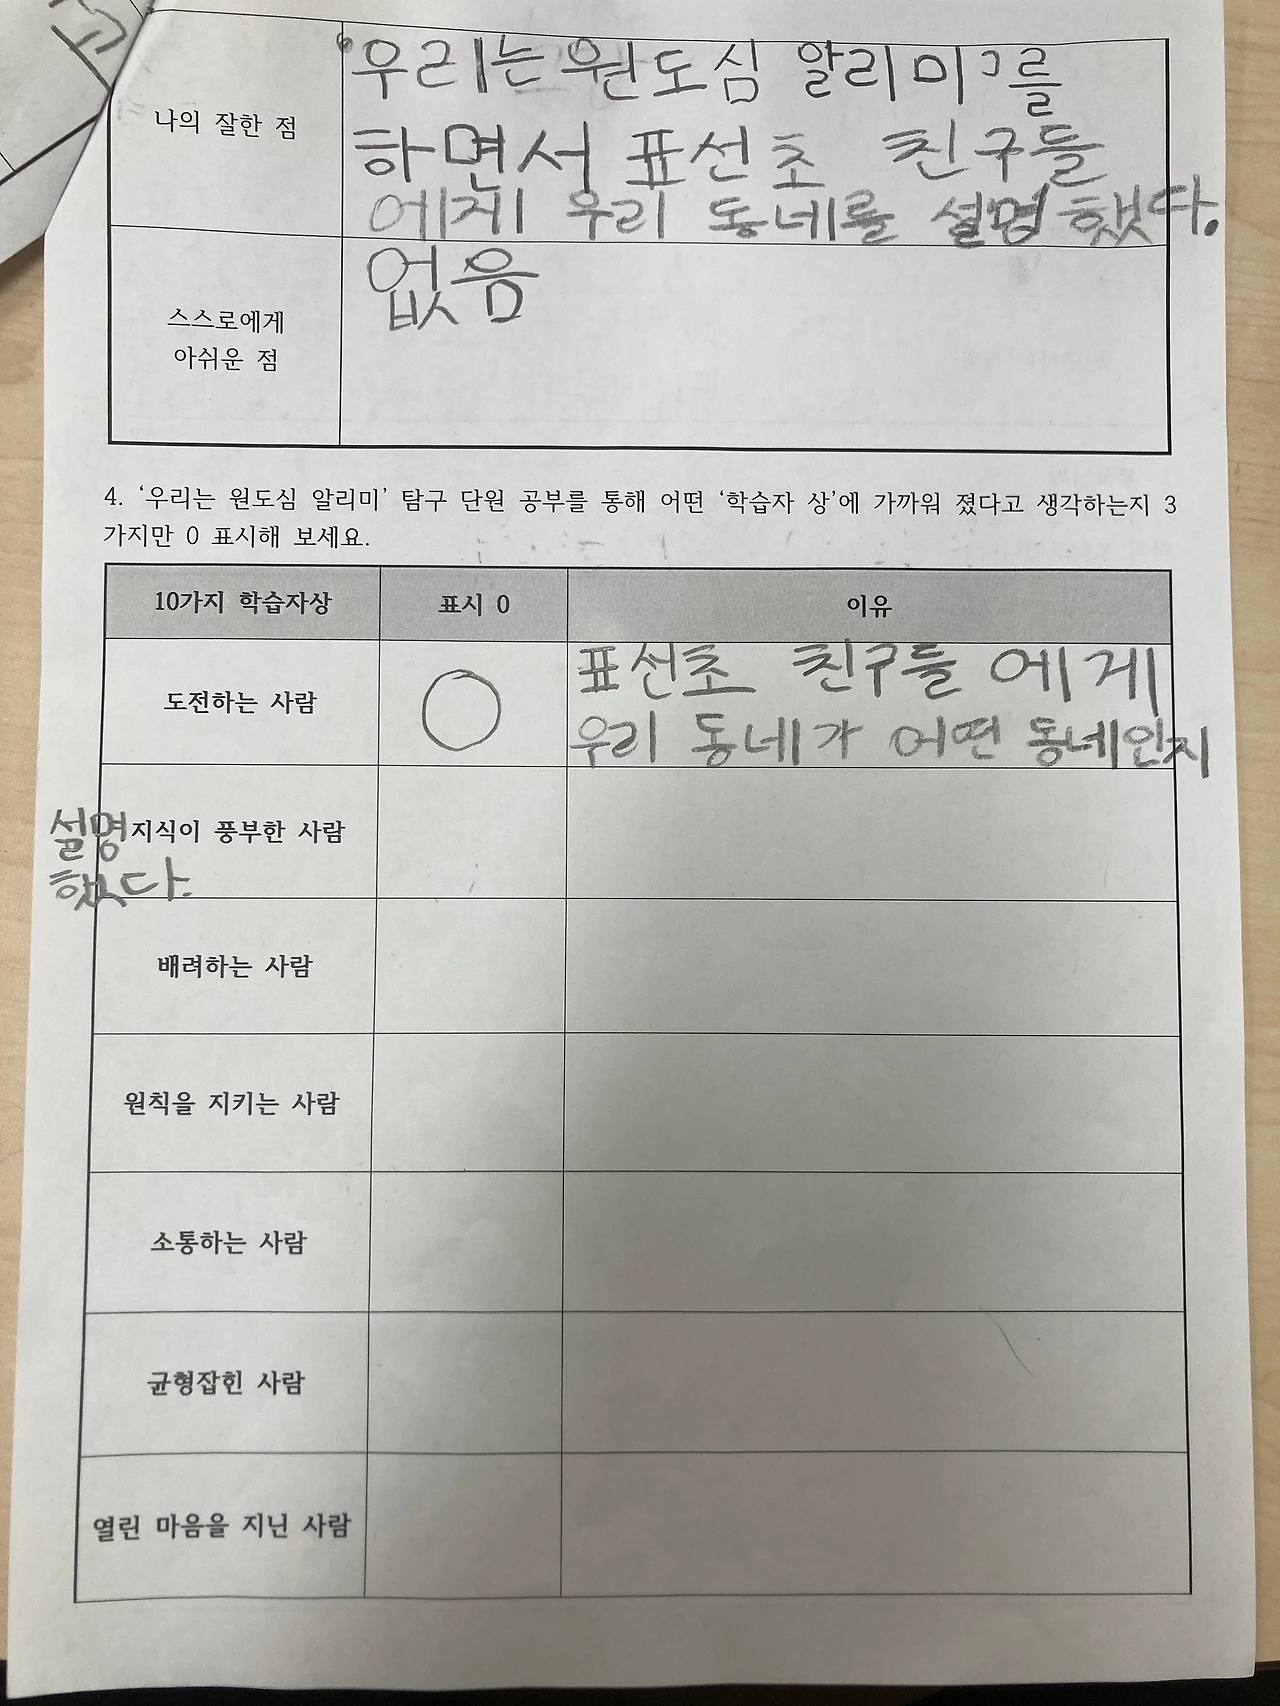 나의 잘한 점
'우리는 원도심 알리미'를
하면서 표선초 친구들
에게 우리 동네를 설명했다.
스스로에게
아쉬운 점
없음
4. ‘우리는 원도심 알리미’ 탐구 단원 공부를 통해 어떤 ‘학습자 상’에 가까워 졌다고 생각하는지 3
가지만 0 표시해 보세요.
10가지 학습자상 표시 0 이유
도전하는 사람 ○
표선초 친구들 에게
우리 동네가 어떤 동네인지
설명
했다.
지식이 풍부한 사람
배려하는 사람
원칙을 지키는 사람
소통하는 사람
균형잡힌 사람
열린 마음을 지닌 사람